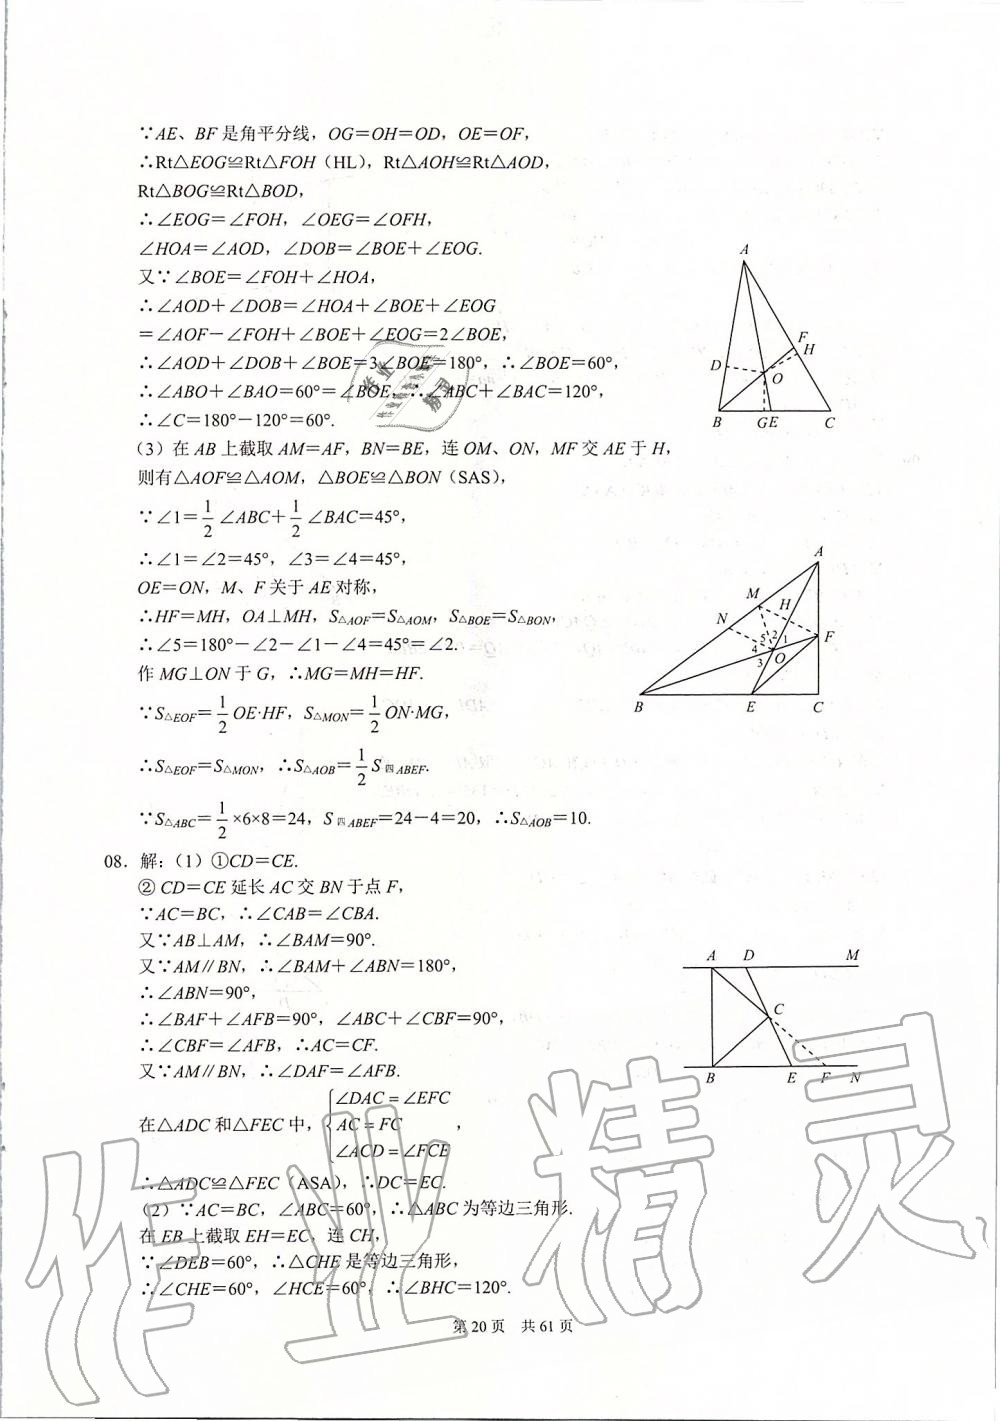 ∵AE、BF 是角平分线，OG＝OH＝OD，OE＝OF，
∴Rt△EOG≌Rt△FOH（HL），Rt△AOH≌Rt△AOD，
Rt△BOG≌Rt△BOD，
∴∠EOG＝∠FOH，∠OEG＝∠OFH，
∠HOA＝∠AOD，∠DOB＝∠BOE＋∠EOG.
又∵∠BOE＝∠FOH＋∠HOA，
∴∠AOD＋∠DOB＝∠HOA＋∠BOE＋∠EOG
＝∠AOF－∠FOH＋∠BOE＋∠EOG=2∠BOE，
∴∠AOD＋∠DOB＋∠BOE＝3∠BOE＝180°，∴∠BOE＝60°，
∴∠ABO＋∠BAO＝60°＝∠BOE，∴∠ABC＋∠BAC＝120°，
∴∠C＝180°－120°＝60°.
A
F
H
D
O
B
GE
C
（3）在 AB 上截取 AM＝AF，BN＝BE，连 OM、ON，MF 交 AE 于 H，
则有△AOF≌△AOM，△BOE≌△BON（SAS），
∵∠1＝1/2 ∠ABC＋1/2 ∠BAC＝45°，
∴∠1＝∠2＝45°，∠3＝∠4＝45°，
OE＝ON，M、F 关于 AE 对称，
∴HF＝MH，OA⊥MH，S△AOF＝S△AOM，S△BOE＝S△BON，
∴∠5＝180°－∠2－∠1－∠4＝45°＝∠2.
作 MG⊥ON 于 G，∴MG＝MH＝HF.
∵S△EOF＝1/2 OE·HF，S△MON＝1/2 ON·MG，
∴S△EOF＝S△MON，∴S△AOB＝1/2 S四ABEF.
∵S△ABC＝1/2×6×8＝24，S四ABEF＝24－4＝20，∴S△AOB＝10.
A
M
H
N
F
5
2
1
4
3
O
B
E
C
08．解：（1）①CD＝CE.
② CD＝CE 延长 AC 交 BN 于点 F，
∵AC＝BC，∴∠CAB＝∠CBA.
又∵AB⊥AM，∴∠BAM＝90°.
又∵AM∥BN，∴∠BAM＋∠ABN＝180°，
∴∠ABN＝90°，
∴∠BAF＋∠AFB＝90°，∠ABC＋∠CBF＝90°，
∴∠CBF＝∠AFB，∴AC＝CF.
又∵AM∥BN，∴∠DAF＝∠AFB.
在△ADC 和△FEC 中，{∠DAC＝∠EFC
AC＝FC ，
∠ACD＝∠FCE
∴△ADC≌△FEC（ASA），∴DC＝EC.
（2）∵AC＝BC，∠ABC＝60°，∴△ABC 为等边三角形.
在 EB 上截取 EH＝EC，连 CH，
∵∠DEB＝60°，∴△CHE 是等边三角形，
∴∠CHE＝60°，∠HCE＝60°，∴∠BHC＝120°.
A
D
M
C
B
E
F
N
第 20 页 共 61 页
作业精灵